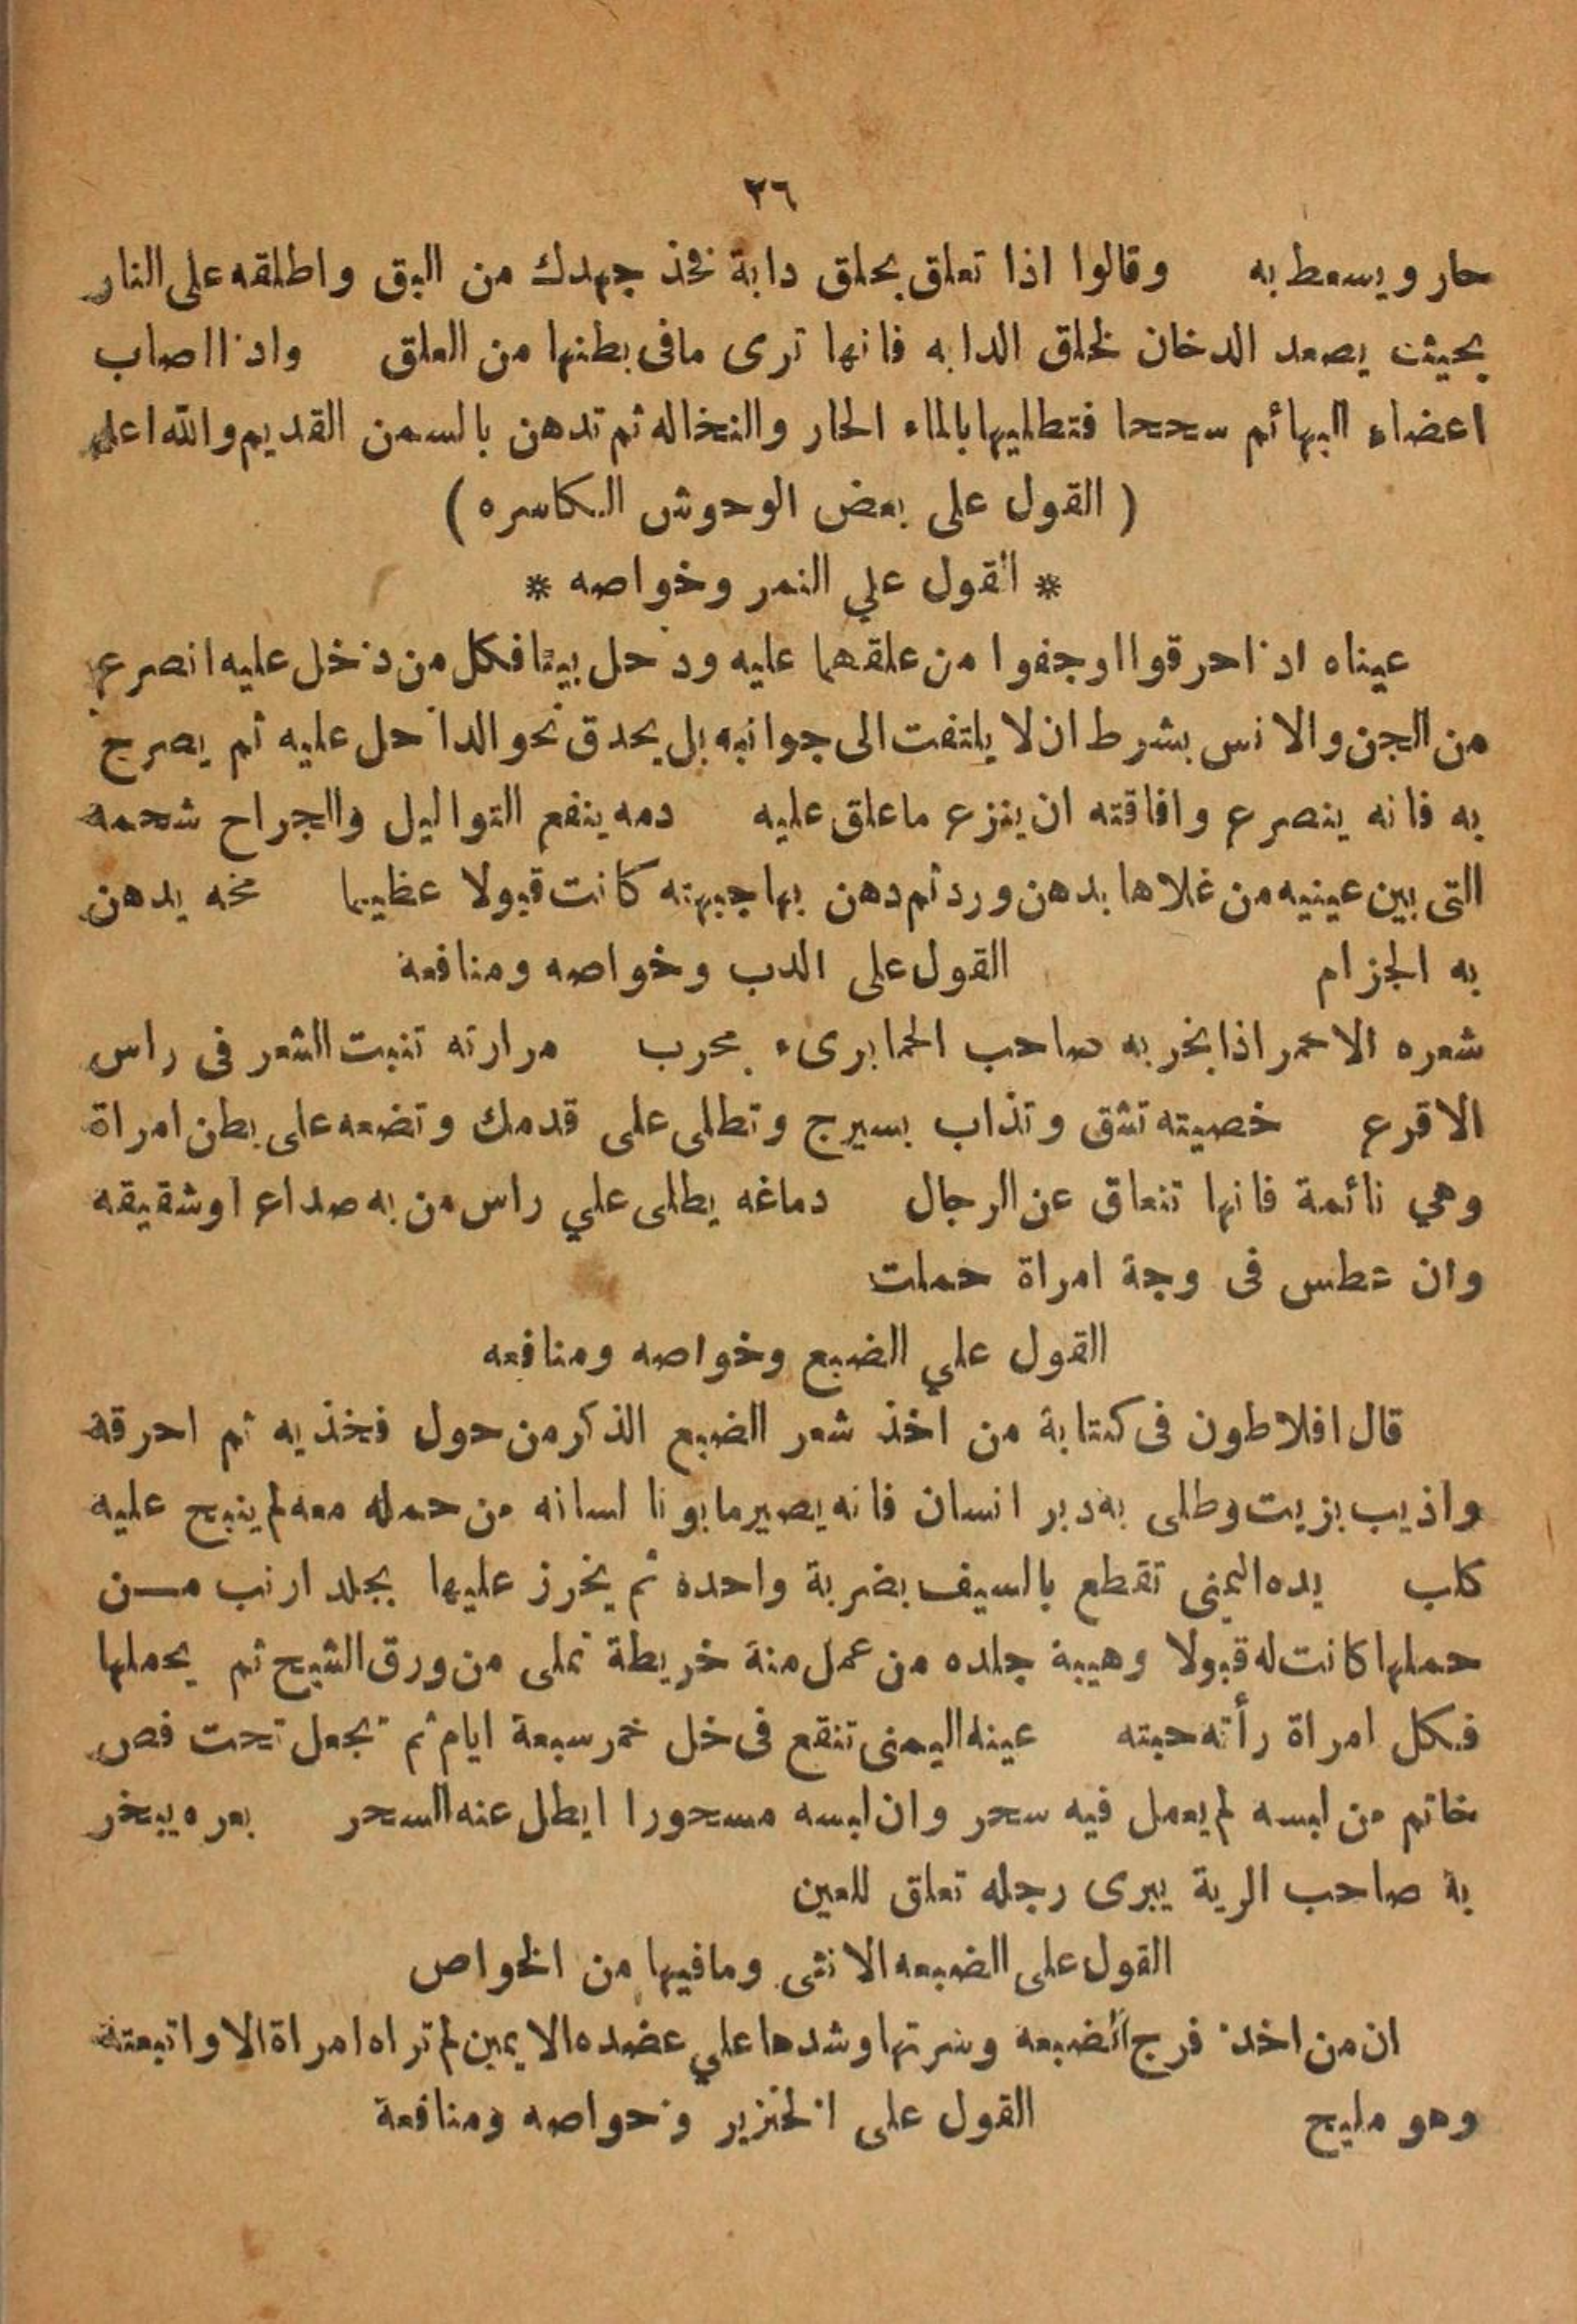 ٢٦
حار ويسعط به وقالوا اذا تعلق بحلق دابة فخذ جهدك من البق واطلقه على النار
بحيث يصعد الدخان لحلق الدابه فانها ترى مافى بطنها من العلق واذا اصاب
اعضاء البهائم سححا فتطليها بالماء الحار والنخاله ثم تدهن بالسمن القديم والله اعلم
( القول على بعض الوحوش الكاسره )
* القول علي النمر وخواصه *
عيناه اذا حرقوا اوجفوا من علقهما عليه ودخل بيتا فكل من دخل عليه انصرع
من الجن والانس بشرط ان لا يلتفت الى جوانبه بل يحدق نحو الداخل عليه ثم يصرخ
به فانه ينصرع وافاقته ان ينزع ماعلق عليه دمه ينفع التواليل والجراح شحمه
التى بين عينيه من غلاها بدهن ورد ثم دهن بها جبهته كانت قبولا عظيما مخه يدهن
به الجزام القول على الدب وخواصه ومنافعة
شعره الاحمر اذا بخر به صاحب الحما برىء مجرب مرارته تنبت الشعر فى راس
الاقرع خصيته تشق وتذاب بسيرج وتطلى على قدمك وتضعه على بطن امراة
وهي نائمة فانها تنعاق عن الرجال دماغه يطلى علي راس من به صداع اوشقيقه
وان عطس فى وجة امراة حملت
القول علي الضبع وخواصه ومنافعه
قال افلاطون فى كتابة من اخذ شعر الضبع الذكر من حول فخذيه ثم احرقة
واذيب بزيت وطلى به دبر انسان فانه يصير مابونا لسانه من حمله معه لم ينبح عليه
كلب يده اليمنى تقطع بالسيف بضربة واحده ثم يخرز عليها بجلد ارنب مـن
حملها كانت له قبولا وهيبة جلده من عمل منة خريطة تملى من ورق الشيح ثم يحملها
فكل امراة رأته حبته عينه اليمنى تنقع فى خل خمر سبعة ايام ثم تجعل تحت فص
خاتم من لبسه لم يعمل فيه سحر وان لبسه مسحورا ابطل عنه السحر بعره يبخر
بة صاحب الرية يبرى رجله تعلق للعين
القول على الضبعه الانثى ومافيها من الخواص
ان من اخذ فرج الضبعه وسرتها وشدها علي عضده الايمين لم تراه امراة الا واتبعتة
وهو مليح القول على الخنزير وخواصه ومنافعة